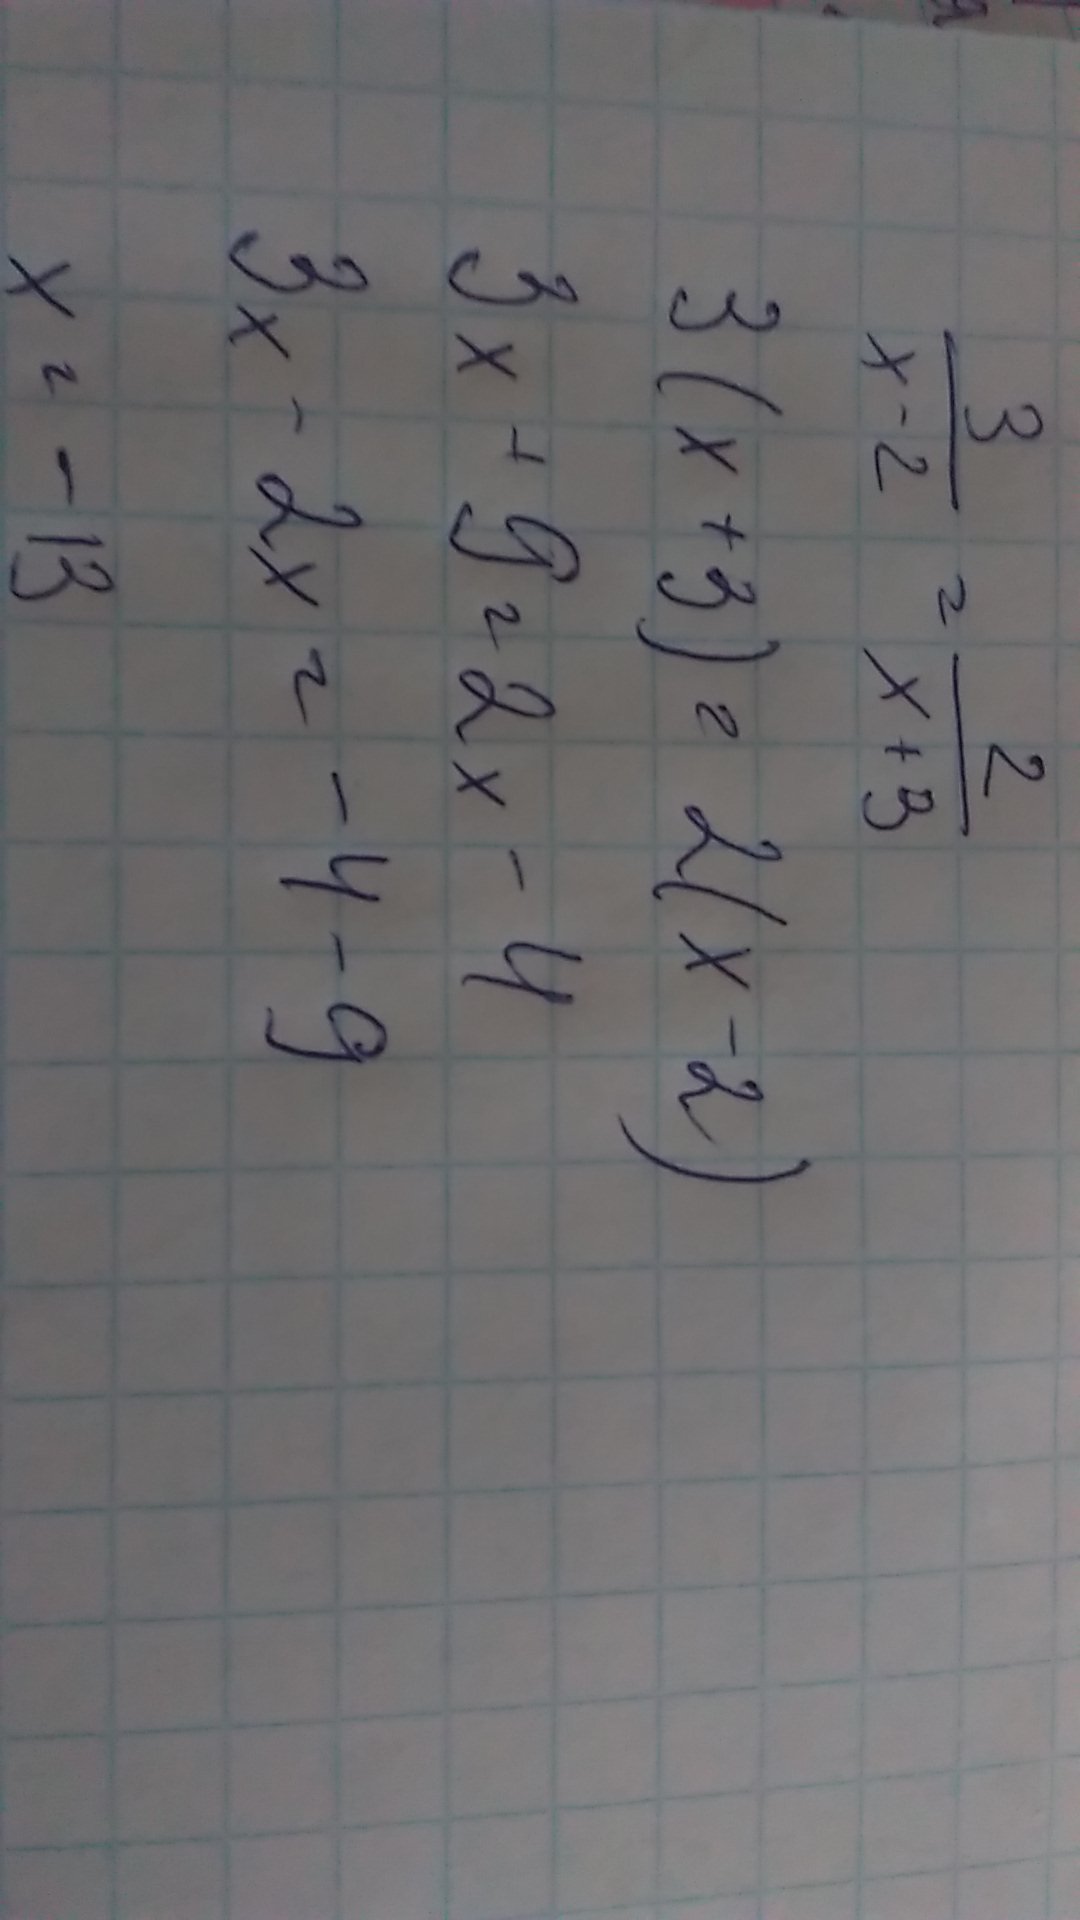 3/(x-2) = 2/(x+3)
3(x+3) = 2(x-2)
3x+9=2x-4
3x-2x=-4-9
x=-13